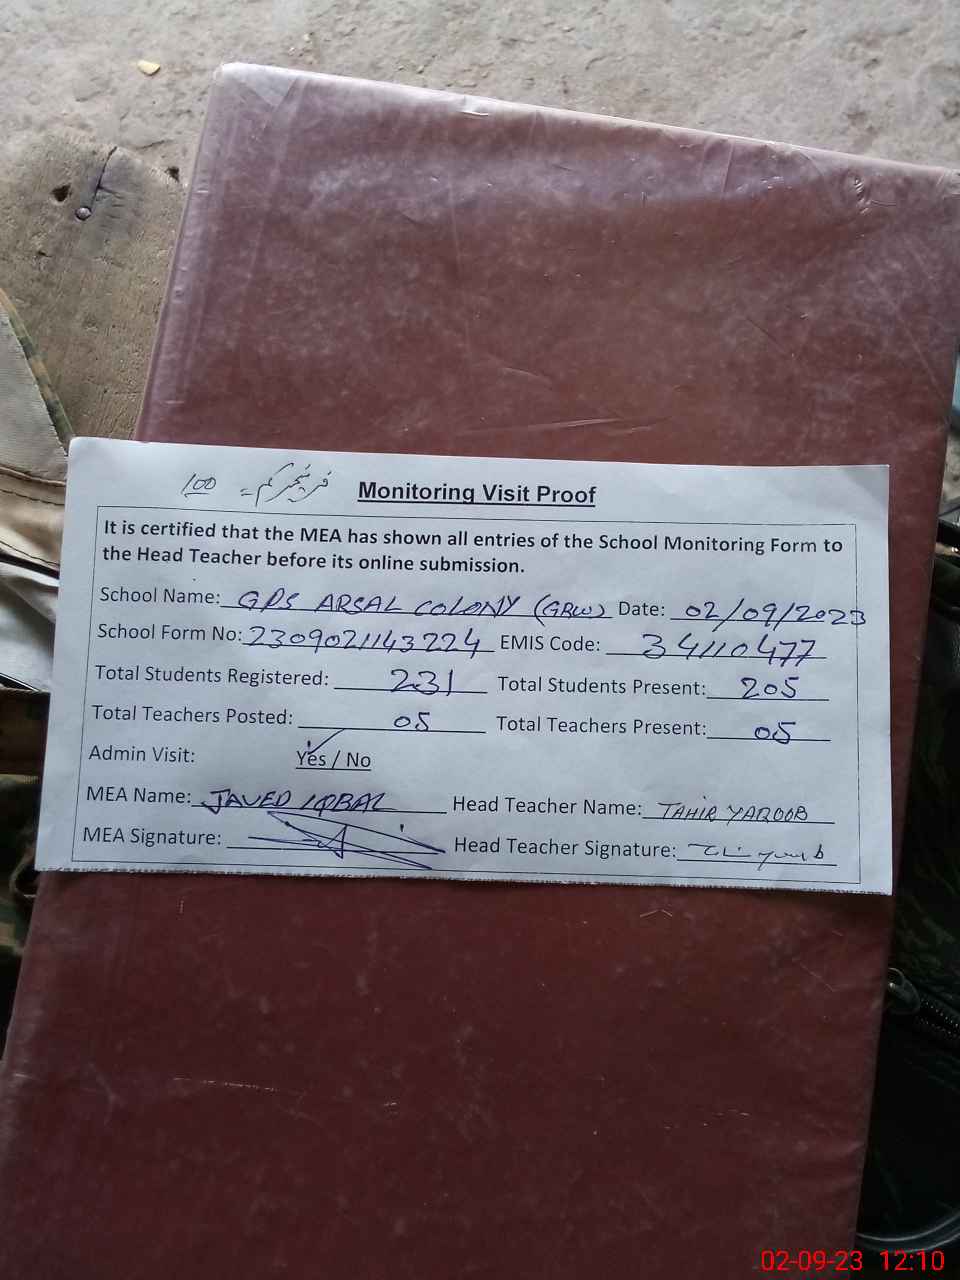 100 = فرنیچر کم
Monitoring Visit Proof
It is certified that the MEA has shown all entries of the School Monitoring Form to
the Head Teacher before its online submission.
School Name: GPS ARSAL COLONY (GRW) Date: 02/09/2023
School Form No: 2309021143224 EMIS Code: 34110477
Total Students Registered: 231 Total Students Present: 205
Total Teachers Posted: 05 Total Teachers Present: 05
Admin Visit: Yes / No
MEA Name: JAVED IQBAL Head Teacher Name: TAHIR YAQOOB
MEA Signature: Head Teacher Signature:
02-09-23 12:10